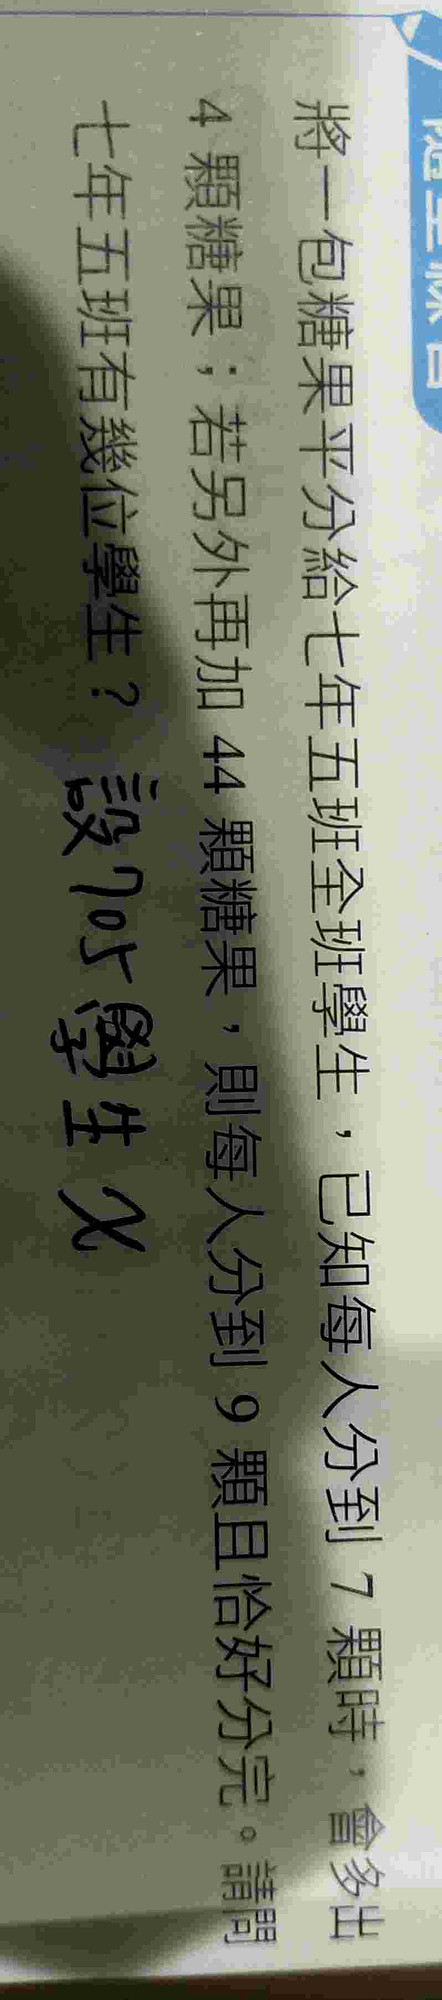 隨堂練習
將一包糖果平分給七年五班全班學生，已知每人分到 7 顆時，會多出
4 顆糖果；若另外再加 44 顆糖果，則每人分到 9 顆且恰好分完。請問
七年五班有幾位學生？ 設705學生 x